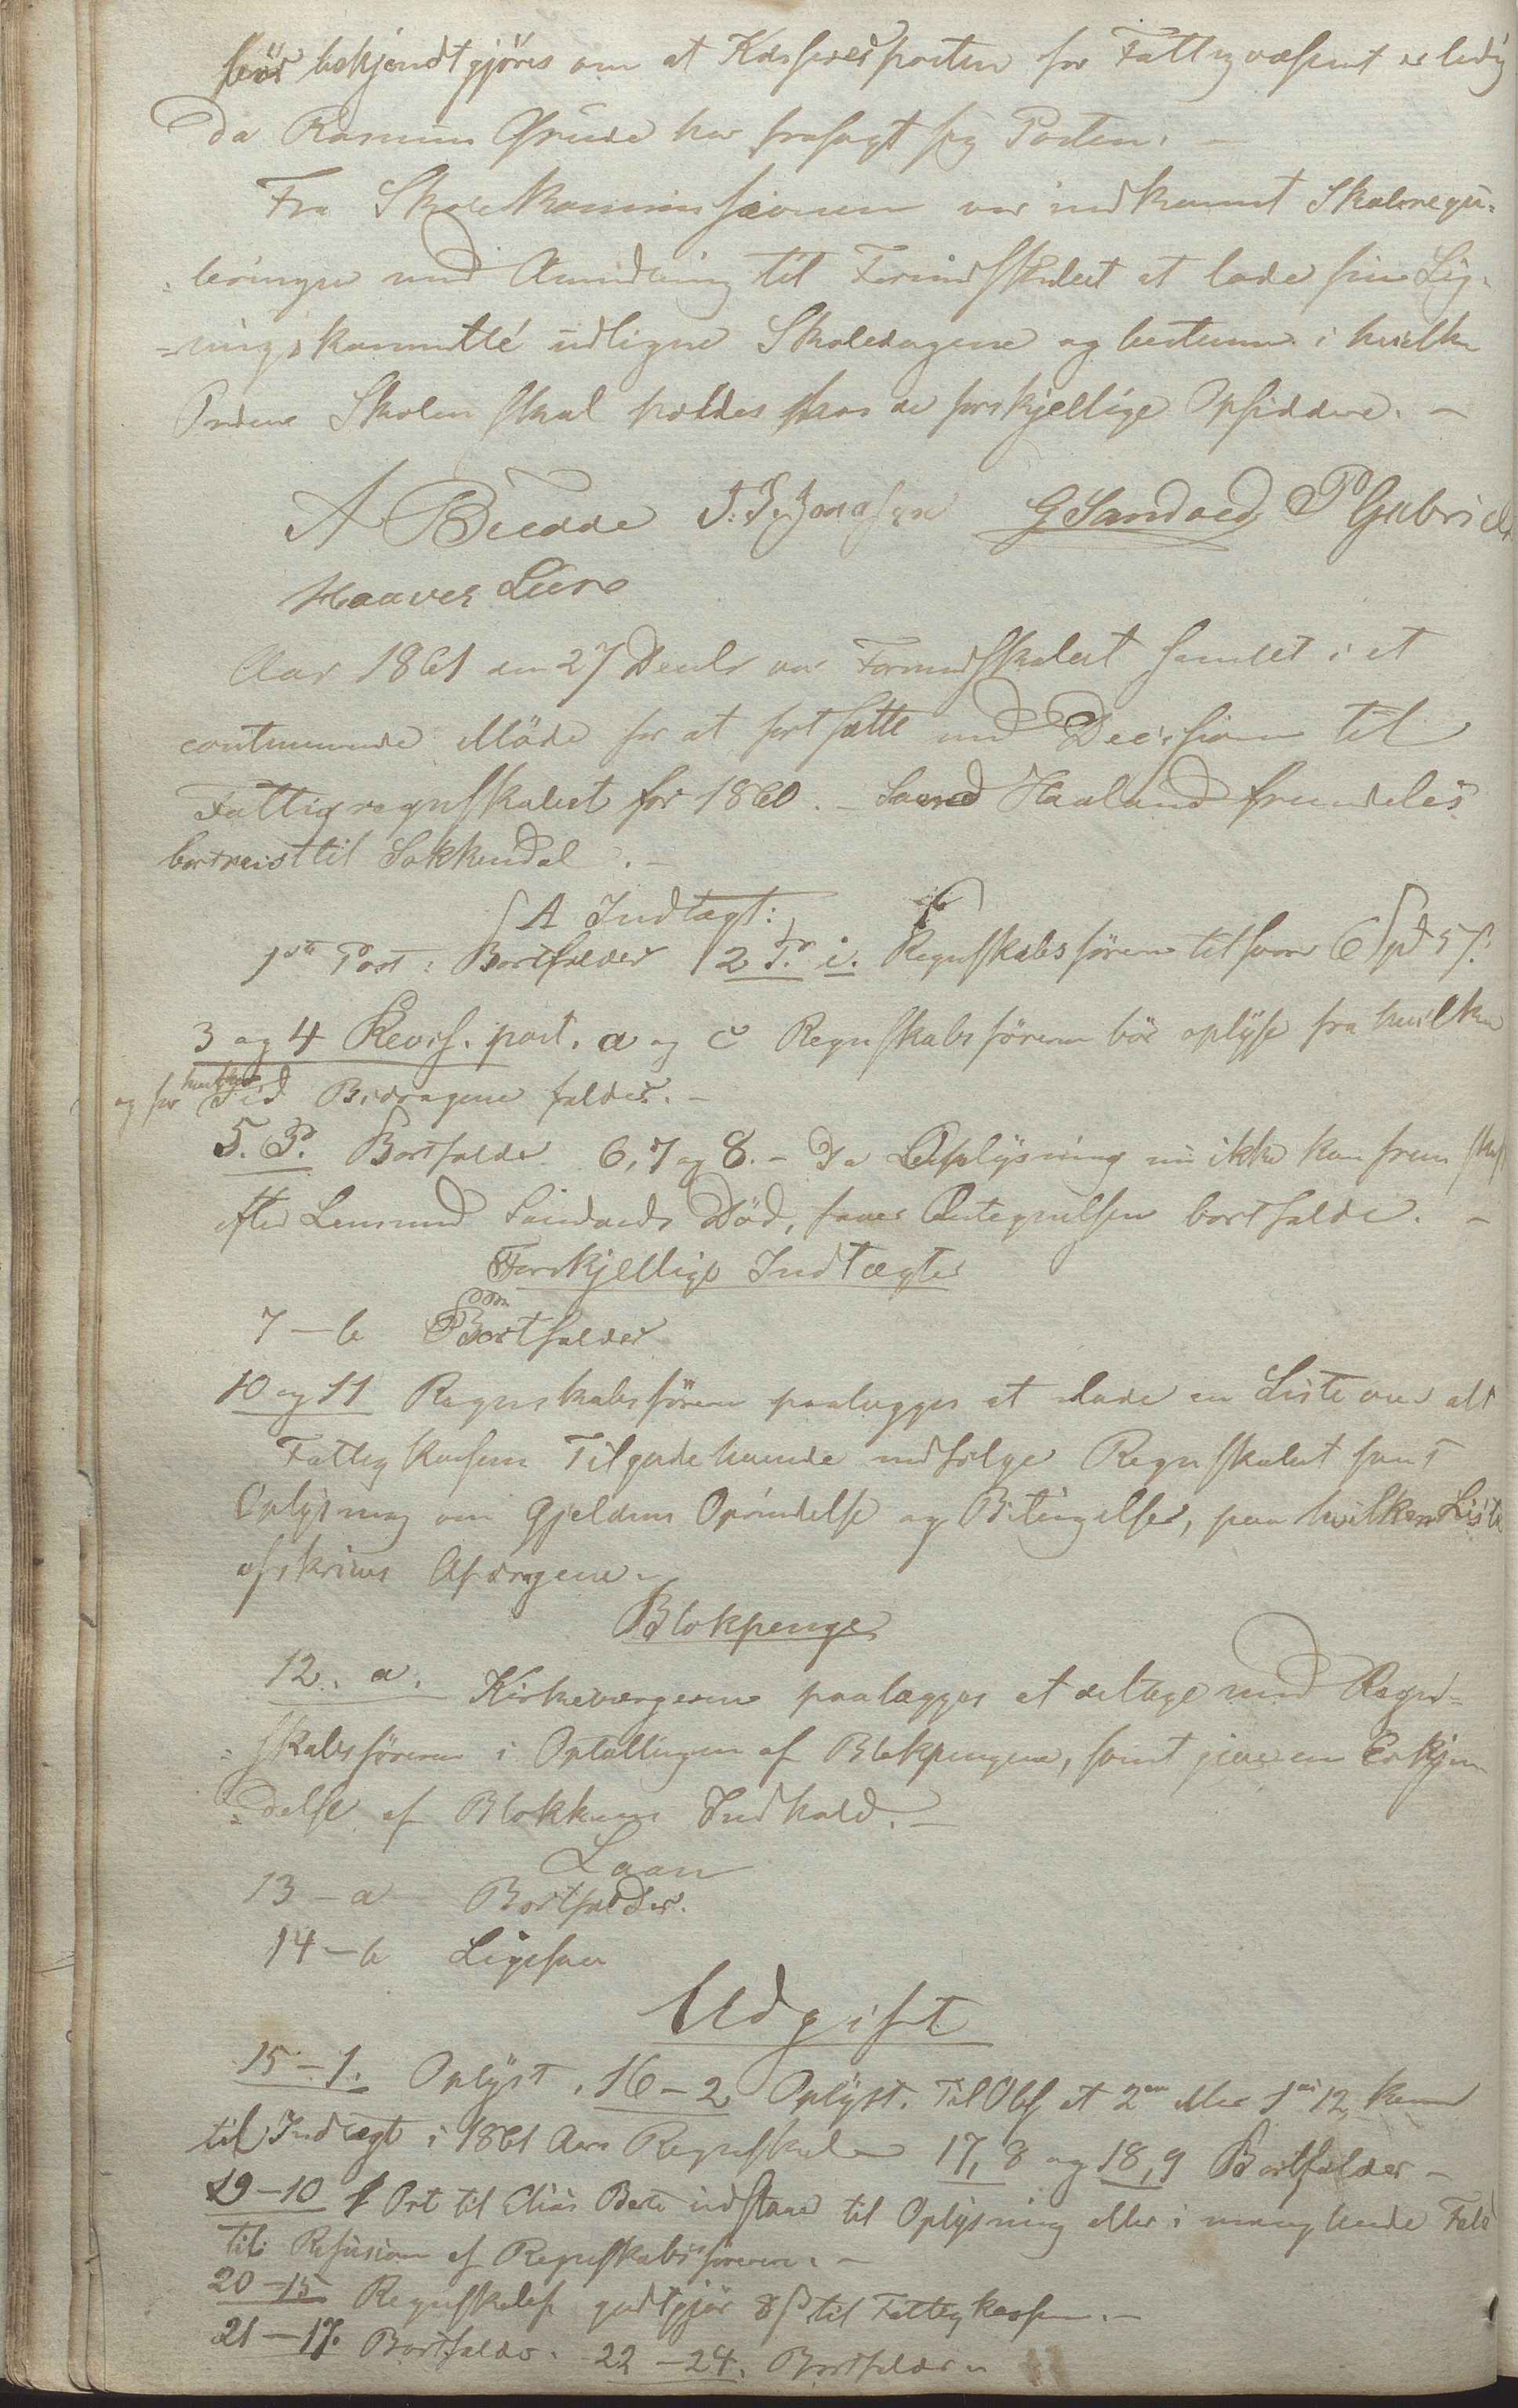 bör bekjendtgjöres om at Kasserer posten for Fattigvæsenet er ledig
da Rasmus Grude har frasagt sig Posten. —
Fra Skolekommissionen var indkommet Skoleregu-
=leringen med Anmodning til Formandskabet at lade sin Lig-
=ningskommitté udligne Skoledagene og bestemme i hvilken
Orden Skolen skal holdes hos de forskjellige Opsiddere. —
A Buedde G Sandved P Gabriels
Haaver Lura
Aar 1861 den 27 Decbr var Formandskabet samlet i et
continuerende Möde for at fortsætte med Decision til
Fattigregnskabet for 1860. — Haaland fremdeles
bortreist til Sokkendal. —
A Indtægt:
1ste Post: Bortfalder 2 P. i. Regnskabsföreren tilsvarer 6 Spd 5 s.
3 og 4 Revis. post. a og c Regnskabsföreren bör oplyse fra hvilken
og for hvilken Tid Bidragene falder. —
5. P. Bortfalder 6, 7 og 8. — Da Oplysning nu ikke kan fremskaf
efter Lensmand Sandveds Död, faaer Antegnelsen bortfalde. —
Forskjellige Indtægter
7 — b Bortfalder
10 og 11 Regnskabsföreren paalægges at lade en Liste over alt
Fattigkassens Tilgodehavende medfölge Regnskabet samt
Oplysning om Gjeldens Oprindelse og Betingelser, paa hvilken Liste
afskrives Afdragene.
Blokpenge
12. a. Kirkeværgerne paalægges at deltage med Regn-
=skabsföreren i Optællingen af Blokpengene, samt give en Erkjen
=delse af Blokkens Indhold. —
Laan
13 — a Bortfalder.
14 — b Ligesaa
Udgift
15 — 1. Oplyst. 16 — 2 Oplyst. Til Obs at 2 eller 1 12 komme
til Indtægt i 1861 Aars Regnskab 17, 8 og 18, 9 Bortfalder —
19 — 10 1 Ort til Elias udstaar til Oplysning eller i manglende Fald
til Refusion af Regnskabsföreren. —
20 — 15 Regnskabsf godtgjör 8 s til Fattigkassen. —
21 — 17. Bortfalder. 22 — 24. Bortfalder